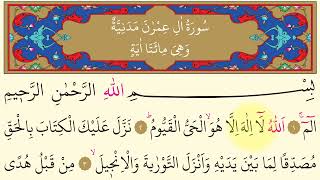 سُورَةُ اٰلِ عِمْرٰنَ مَدَنِيَّةٌ
وَهِيَ مِائَتَا اٰيَةٍ
بِسْمِ اللّٰهِ الرَّحْمٰنِ الرَّحِيمِ
الٓمٓ ۚ ﴿١﴾ اَللّٰهُ لَٓا اِلٰهَ اِلَّا هُوَۙ الْحَيُّ الْقَيُّومُۜ ﴿٢﴾ نَزَّلَ عَلَيْكَ الْكِتَابَ بِالْحَقِّ
مُصَدِّقًا لِمَا بَيْنَ يَدَيْهِ وَاَنْزَلَ التَّوْرٰيةَ وَالْاِنْجِيلَۙ ﴿٣﴾ مِنْ قَبْلُ هُدًى